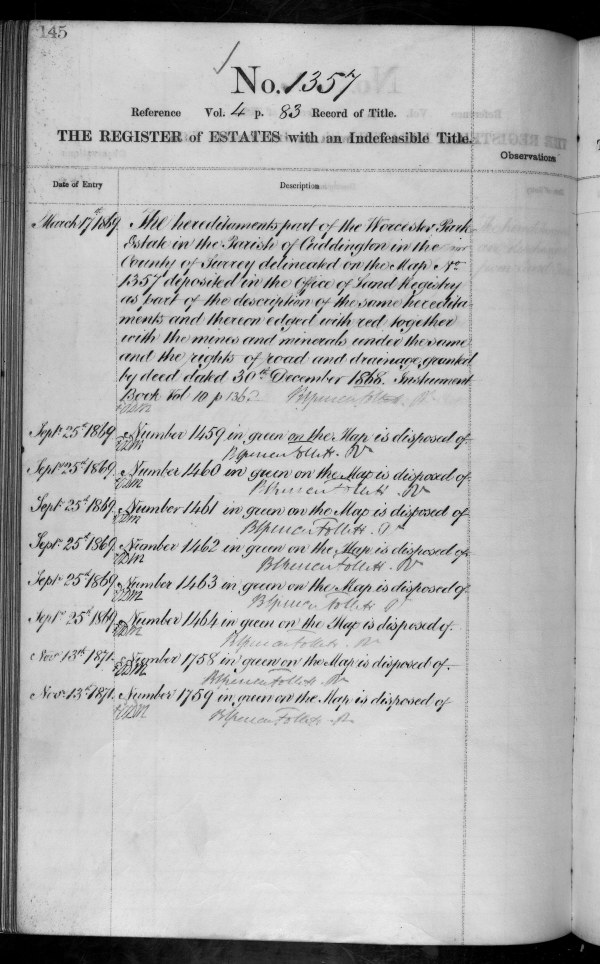 145
No. 1357
Reference Vol. 4 p. 83 Record of Title.
THE REGISTER of ESTATES with an Indefensible Title.
Observations
Date of Entry
Description
March 17th 1869. The hereditaments part of the Worcester Park
Estate in the Parish of Cuddington in the
County of Surrey delineated on the Map No
1357 deposited in the Office of Land Registry
as part of the description of the same heredita-
ments and thereon edged with red together
with the mines and minerals under the same
and the rights of road and drainage granted
by deed dated 30th December 1868. Instrument
Book Vol 10 p 136 BSpencer Follett. R
Sept. 25th 1869. Number 1459 in green on the Map is disposed of
BSpencer Follett. R
Sept. 25th 1869. Number 1460 in green on the Map is disposed of
BSpencer Follett. R
Sept. 25th 1869. Number 1461 in green on the Map is disposed of
BSpencer Follett. R
Sept. 25th 1869. Number 1462 in green on the Map is disposed of
BSpencer Follett. R
Sept. 25th 1869. Number 1463 in green on the Map is disposed of
BSpencer Follett R
Sept. 25th 1869. Number 1464 in green on the Map is disposed of
BSpencer Follett. R
Nov. 13th 1871. Number 1758 in green on the Map is disposed of
BSpencer Follett. R
Nov. 13th 1871. Number 1759 in green on the Map is disposed of
BSpencer Follett. R